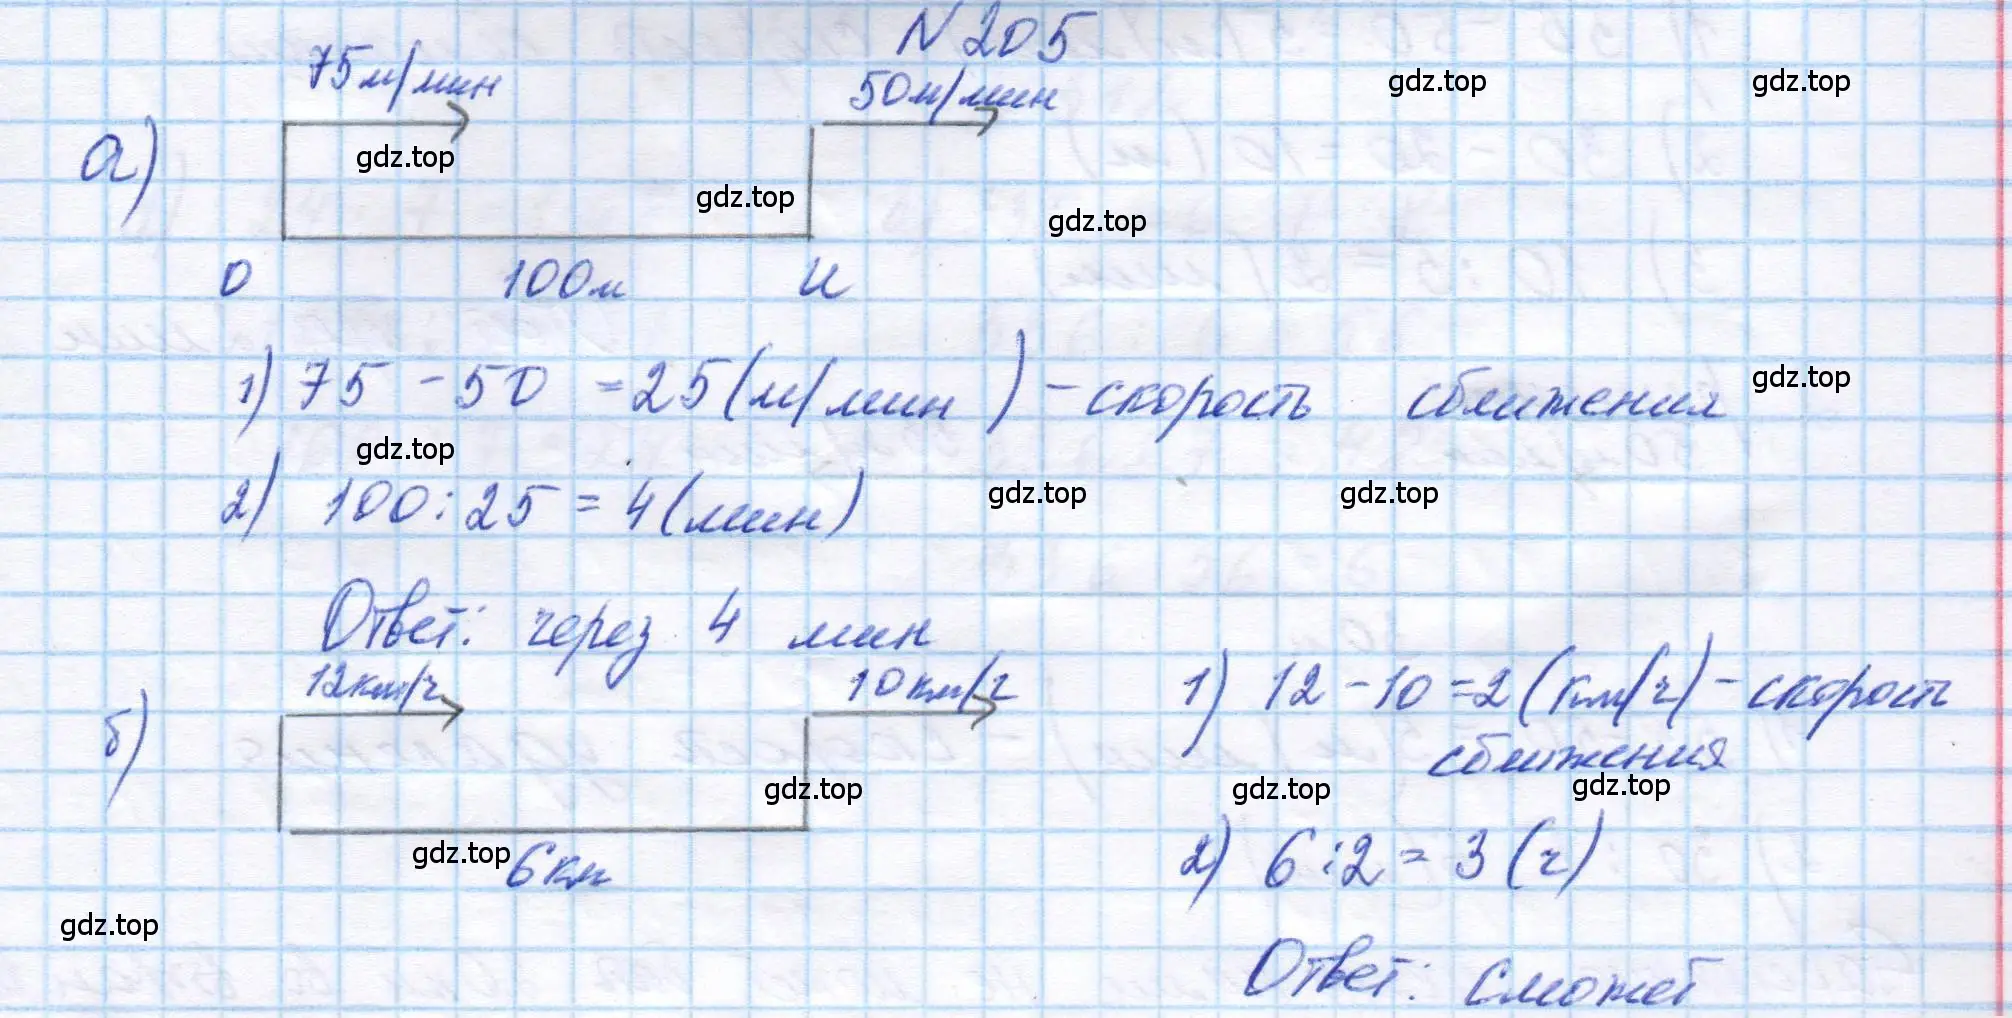 N 205
75м/мин 50м/мин
gdz.top gdz.top
а)
gdz.top
gdz.top
gdz.top
О 100м И
1) 75 - 50 = 25 (м/мин) - скорость сближения
gdz.top
gdz.top
2) 100 : 25 = 4 (мин)
gdz.top gdz.top
Ответ: через 4 мин
12км/ч 10км/ч
б)
1) 12 - 10 = 2 (км/ч) - скорость
сближения
gdz.top gdz.top gdz.top
6км
gdz.top
2) 6 : 2 = 3 (ч)
gdz.top
Ответ: сможет